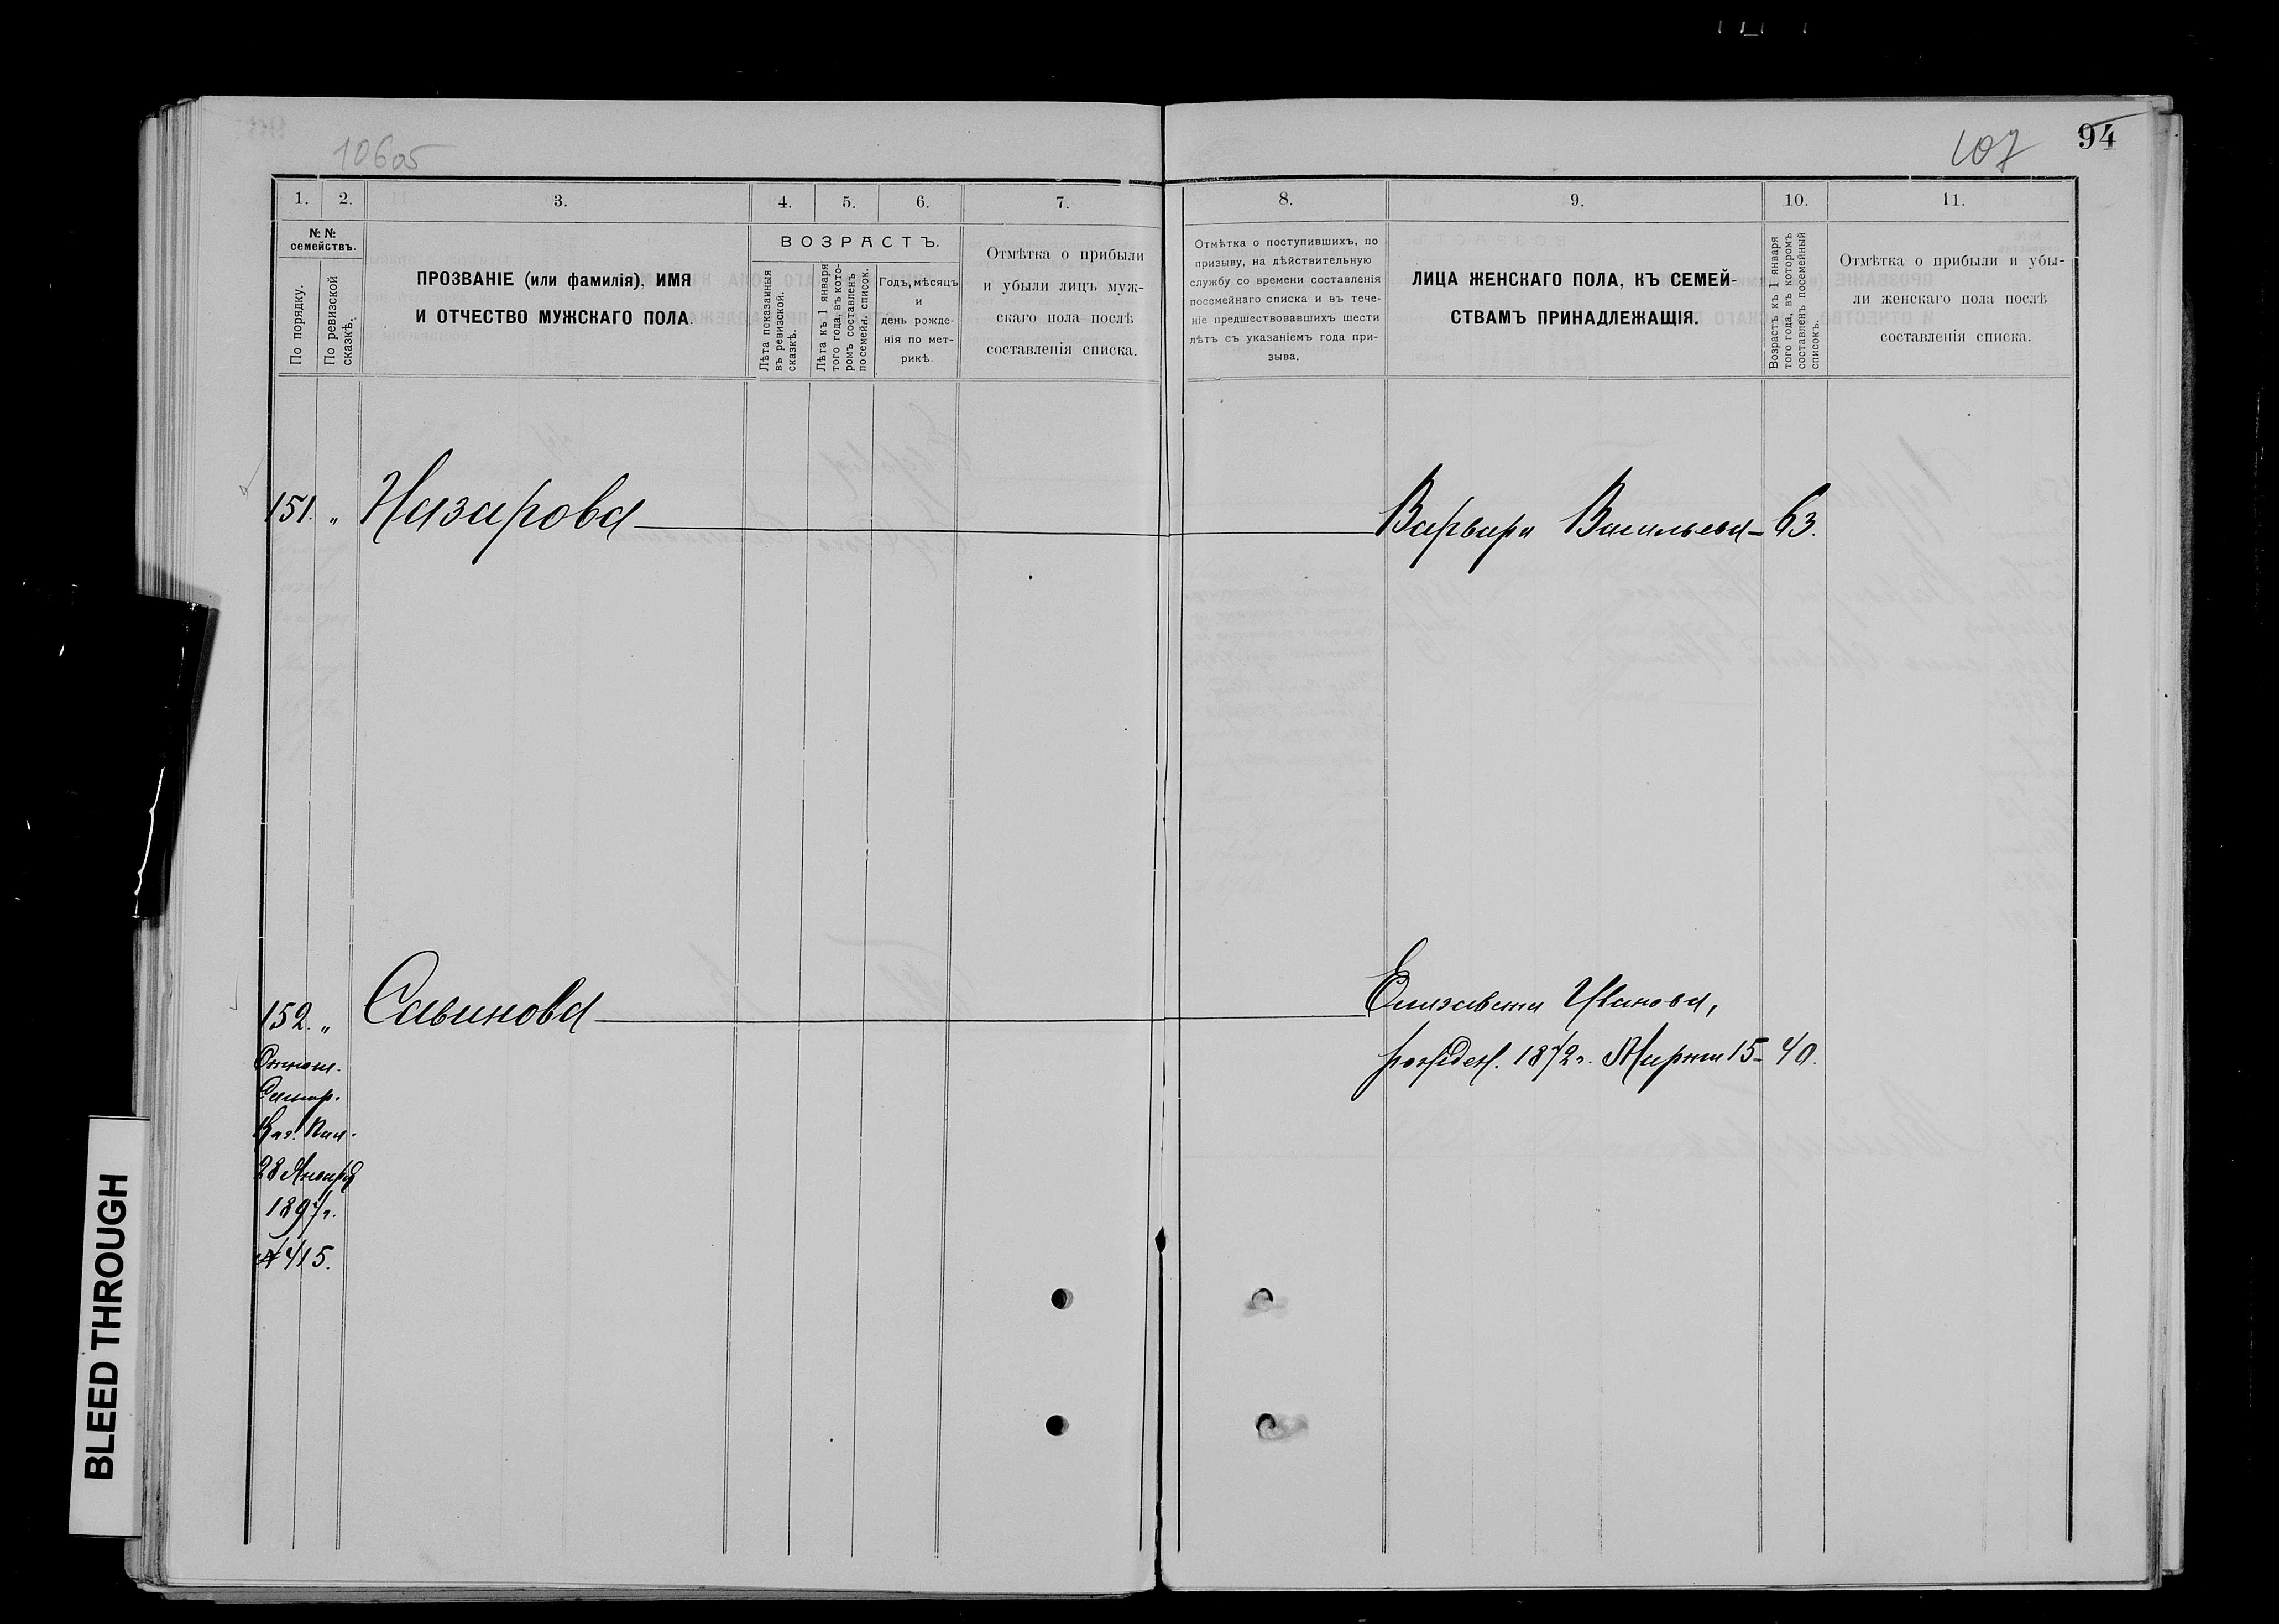 10605
107
94
1. 2. 3. 4. 5. 6. 7.
№№ семействъ.
По порядку.
По ревизской сказкѣ.
ПРОЗВАНІЕ (или фамилія), ИМЯ
И ОТЧЕСТВО МУЖСКАГО ПОЛА.
ВОЗРАСТЪ.
Лѣта показанныя въ ревизской сказкѣ.
Лѣта къ 1 января того года, въ которомъ составленъ посемейн. список.
Годъ, мѣсяцъ
и
день рожде-
нія по мет-
рикѣ.
Отмѣтка о прибыли
и убыли лицъ муж-
скаго пола послѣ
составленія списка.
8. 9. 10. 11.
Отмѣтка о поступившихъ, по
призыву, на дѣйствительную
службу со времени составленія
посемейнаго списка и въ тече-
ніе предшествовавшихъ шести
лѣтъ съ указаніемъ года при-
зыва.
ЛИЦА ЖЕНСКАГО ПОЛА, КЪ СЕМЕЙ-
СТВАМЪ ПРИНАДЛЕЖАЩІЯ.
Возрастъ къ 1 января
того года, въ которомъ
составленъ посемейный
списокъ.
Отмѣтка о прибыли и убы-
ли женскаго пола послѣ
составленія списка.
151. „ Назарова Варвара Васильева - 63.
152. „ Савинова Елизавета Иванова,
рожден. 1872 г. Марта 15 - 40.
Отнош.
Самар.
Каз. Пал.
28 Января
1897 г.
№ 415.
BLEED THROUGH